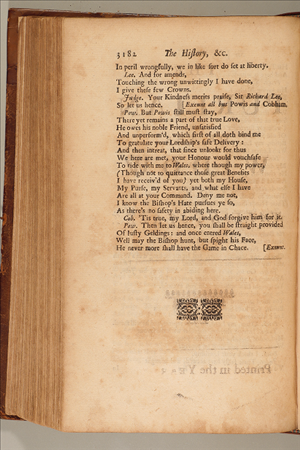 3182 The History, &c.
In peril wrongfully, we in like sort do set at liberty.
Lee. And for amends,
Touching the wrong unwittingly I have done,
I give these few Crowns.
Judge. Your Kindness merits praise, Sir Richard Lee,
So let us hence. [Exeunt all but Powis and Cobham.
Pow. But Powis still must stay,
There yet remains a part of that true Love,
He owes his noble Friend, unsatisfied
And unperform'd, which first of all doth bind me
To gratulate your Lordship's safe Delivery:
And then intreat, that since unlookt for thus
We here are met, your Honour would vouchsafe
To ride with me to Wales, where though my power,
(Though not to quittance those great Benefits
I have receiv'd of you) yet both my House,
My Purse, my Servants, and what else I have
Are all at your Command. Deny me not,
I know the Bishop's Hate pursues ye so,
As there's no safety in abiding here.
Cob. 'Tis true, my Lord, and God forgive him for it.
Pow. Then let us hence, you shall be straight provided
Of lusty Geldings: and once entred Wales,
Well may the Bishop hunt, but spight his Face,
He never more shall have the Game in Chace. [Exeunt.